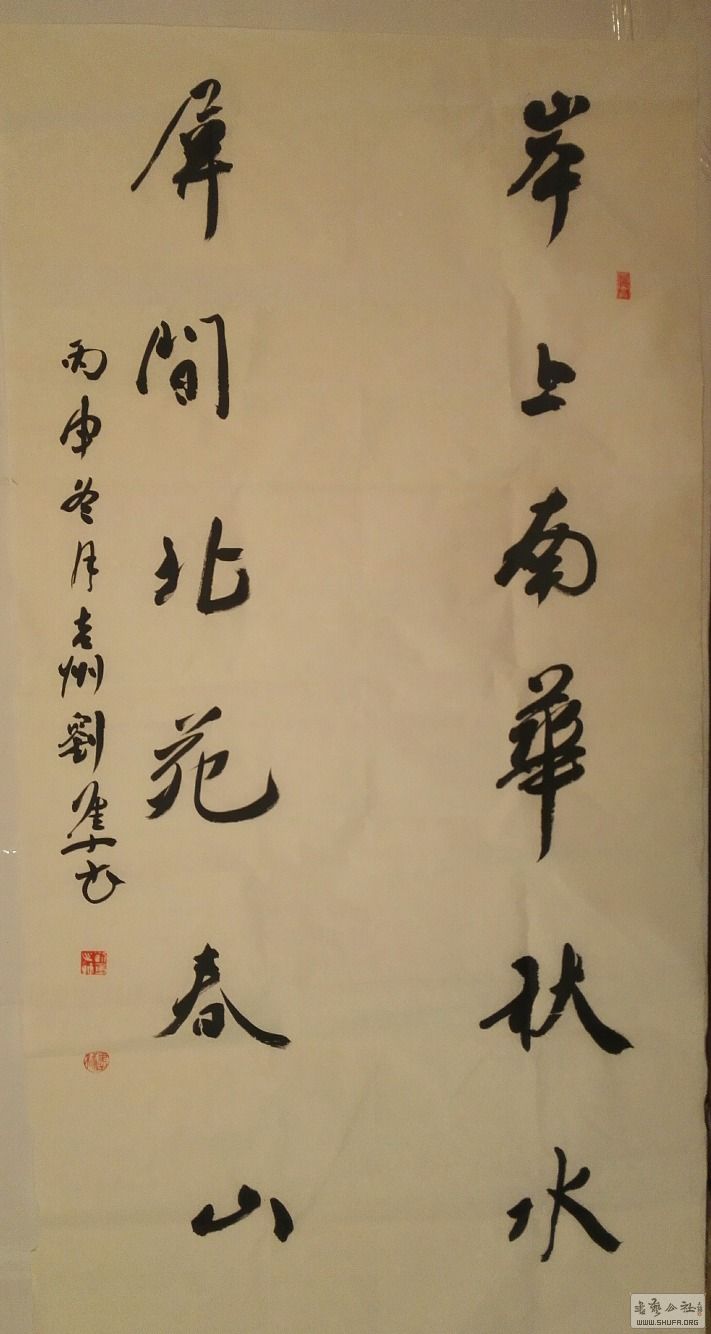 岸上南華秋水
屏間北苑春山
丙申冬月吉州劉
書藝公社
WWW.SHUFA.ORG